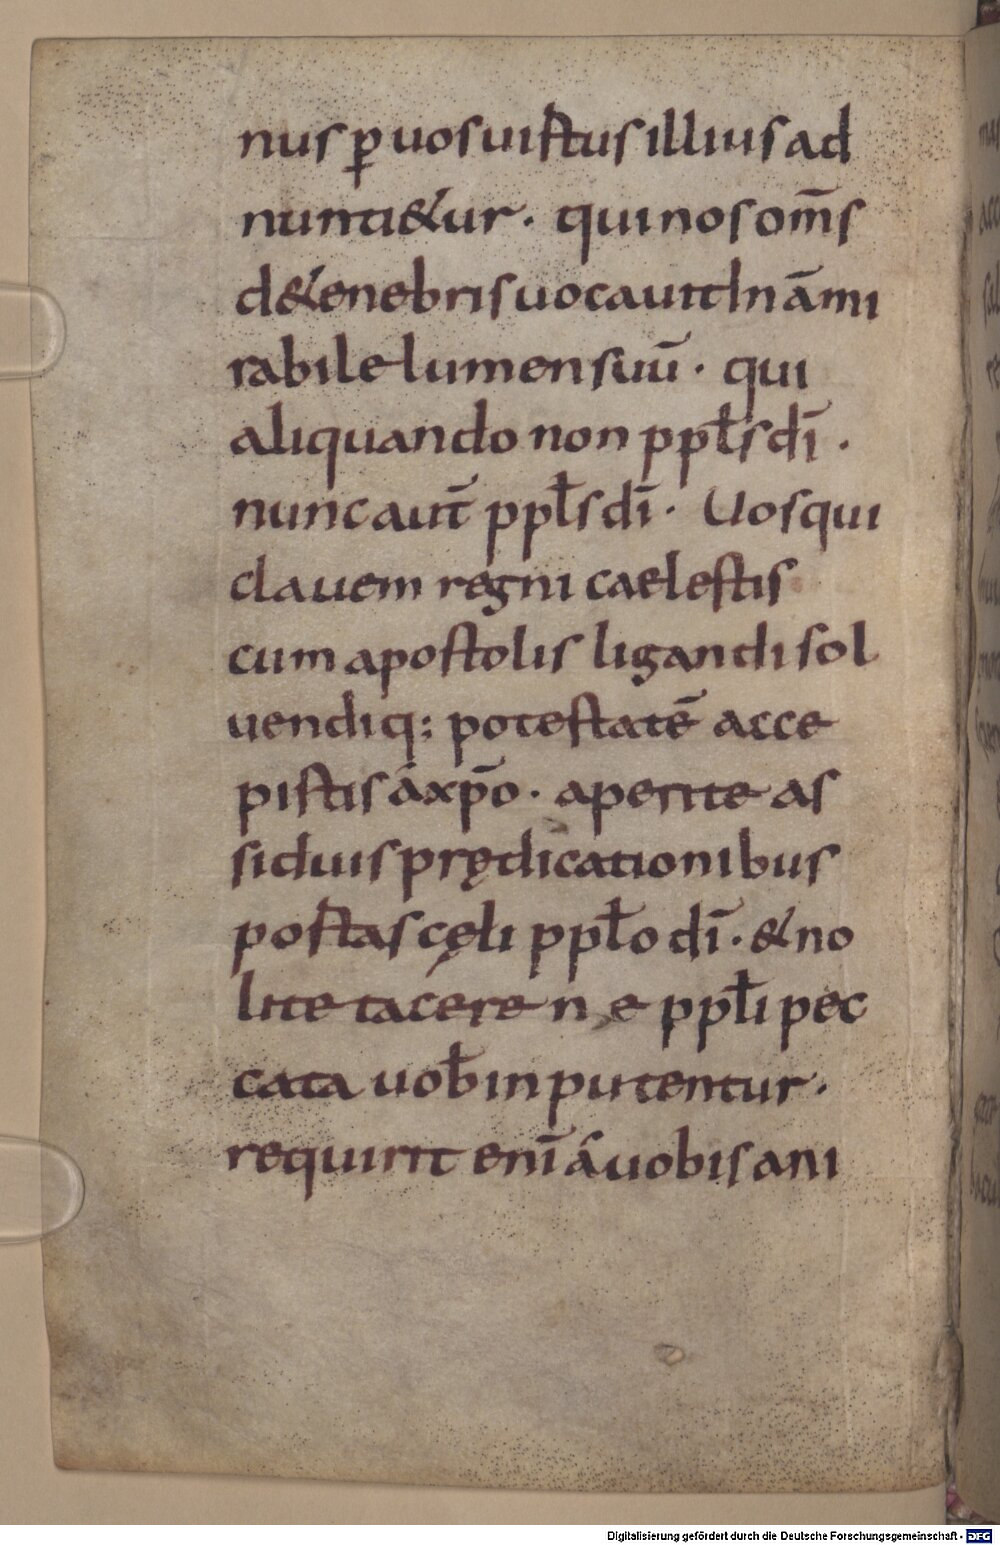 nus ꝑ uos uistus illius ad
nunti&ur · qui nos om̄s
d&enebris uocauit In ām̄i
rabile lumen suū · qui
aliquando non ppłs dī ·
nunc aut̄ ppłs dī · Uos qui
clauem regni caelestis
cum apostolis ligandi sol
uendiq; potestatē acce
pistis áxp̄o · aperite as
siduis prędicationibus
postas cęli ppło dī · & no
lite tacere n e ppłi pec
cata uob̄ inputentur ·
requirit enī á uobis ani
Digitalisierung gefördert durch die Deutsche Forschungsgemeinschaft - DFG